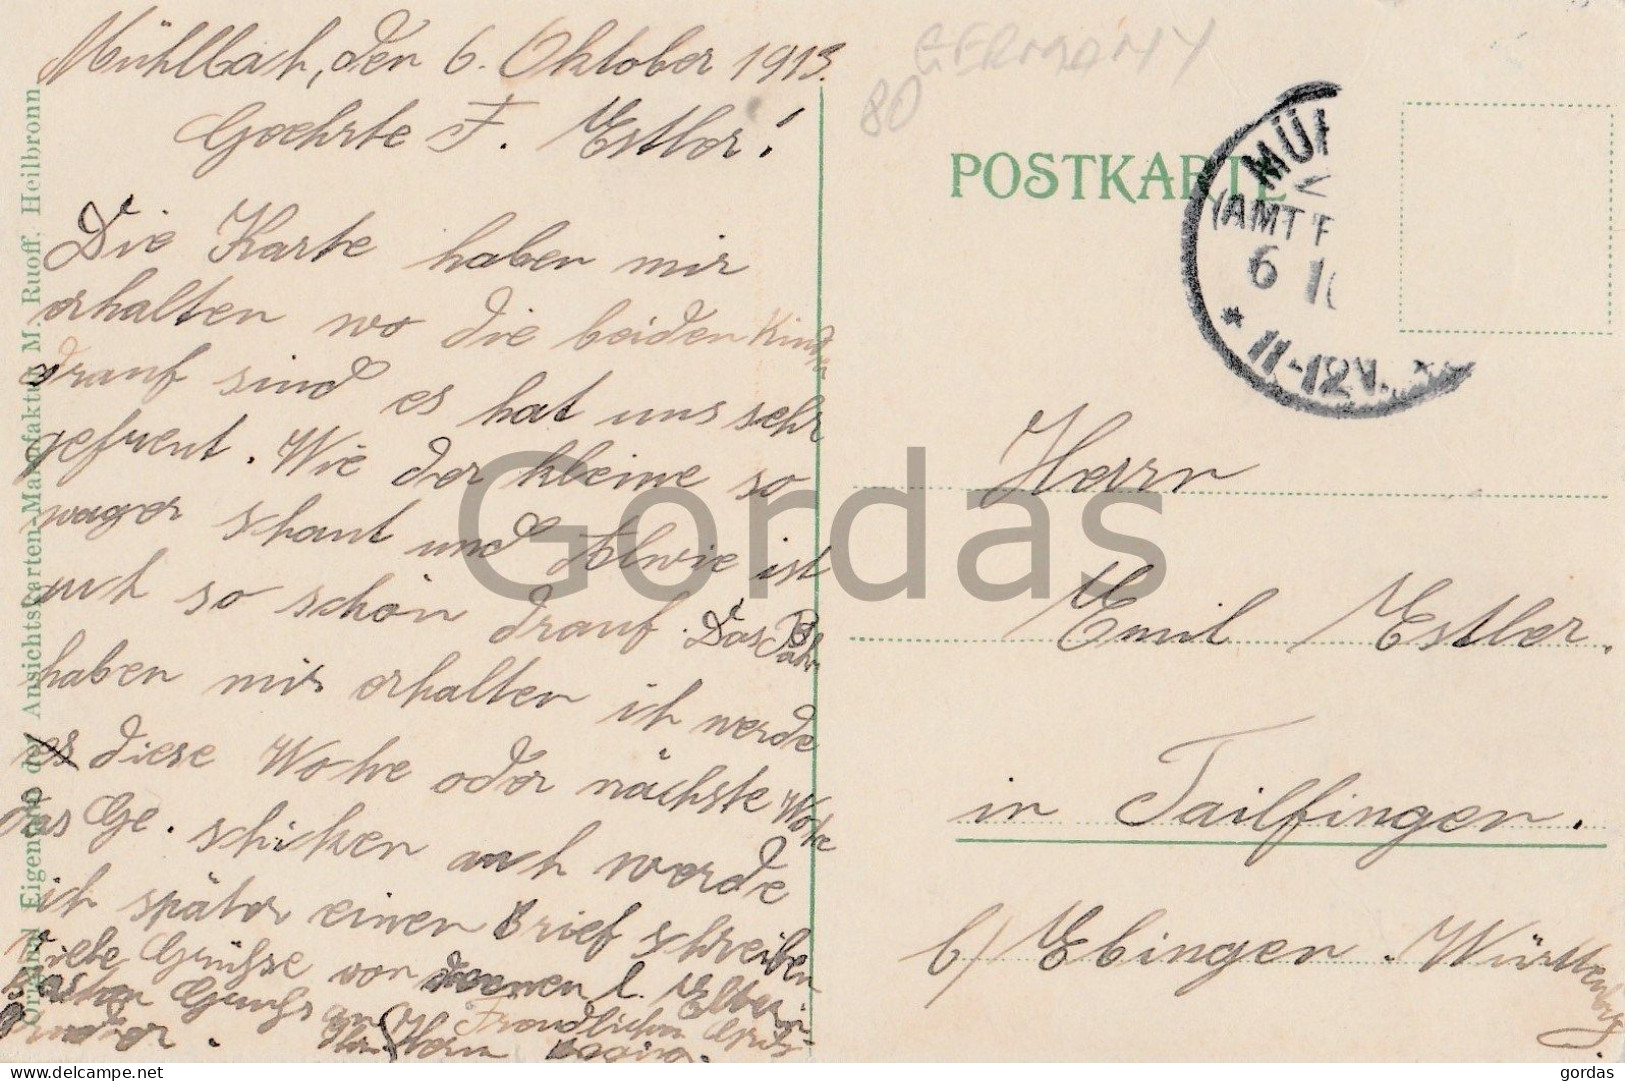 Mühlbach, den 6. Oktober 1913.
Geehrte F. Estler!
Die Karte haben mir
erhalten wo die beiden Kinder
drauf sind es hat uns sehr
gefreut. Wie der kleine so
wager schaut und Alwie ist
auch so schön drauf. Das
haben mir erhalten ich werde
es diese Woche oder nächste Woche
das Ge. schicken auch werde
ich später einen Brief schreiben
Viele Grüsse von
Original Eigentum der Ansichtskarten-Manufaktur M. Ruoff. Heilbronn.
GERMANY
80
POSTKARTE
MÜH
(AMT
6 10
* 11-12V. *
Herrn
Emil Estler.
in Tailfingen.
b/ Ebingen. Württenberg.
Gordas
delcampe.net
gordas